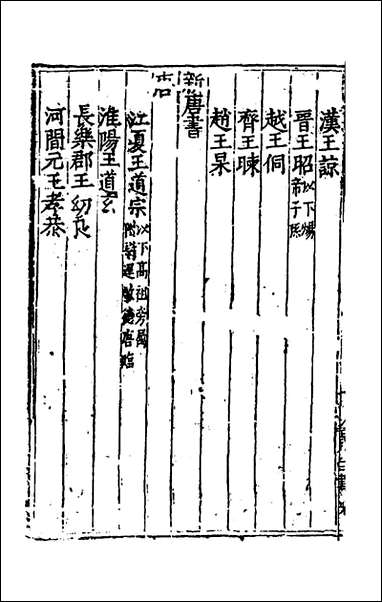 漢王諒
晉王昭以下煬帝子孫
越王侗
齊王暕
趙王杲
新唐書
唐
江夏王道宗以下高祖旁屬
淮陽王道玄
長樂郡王幼良
河間元王孝恭